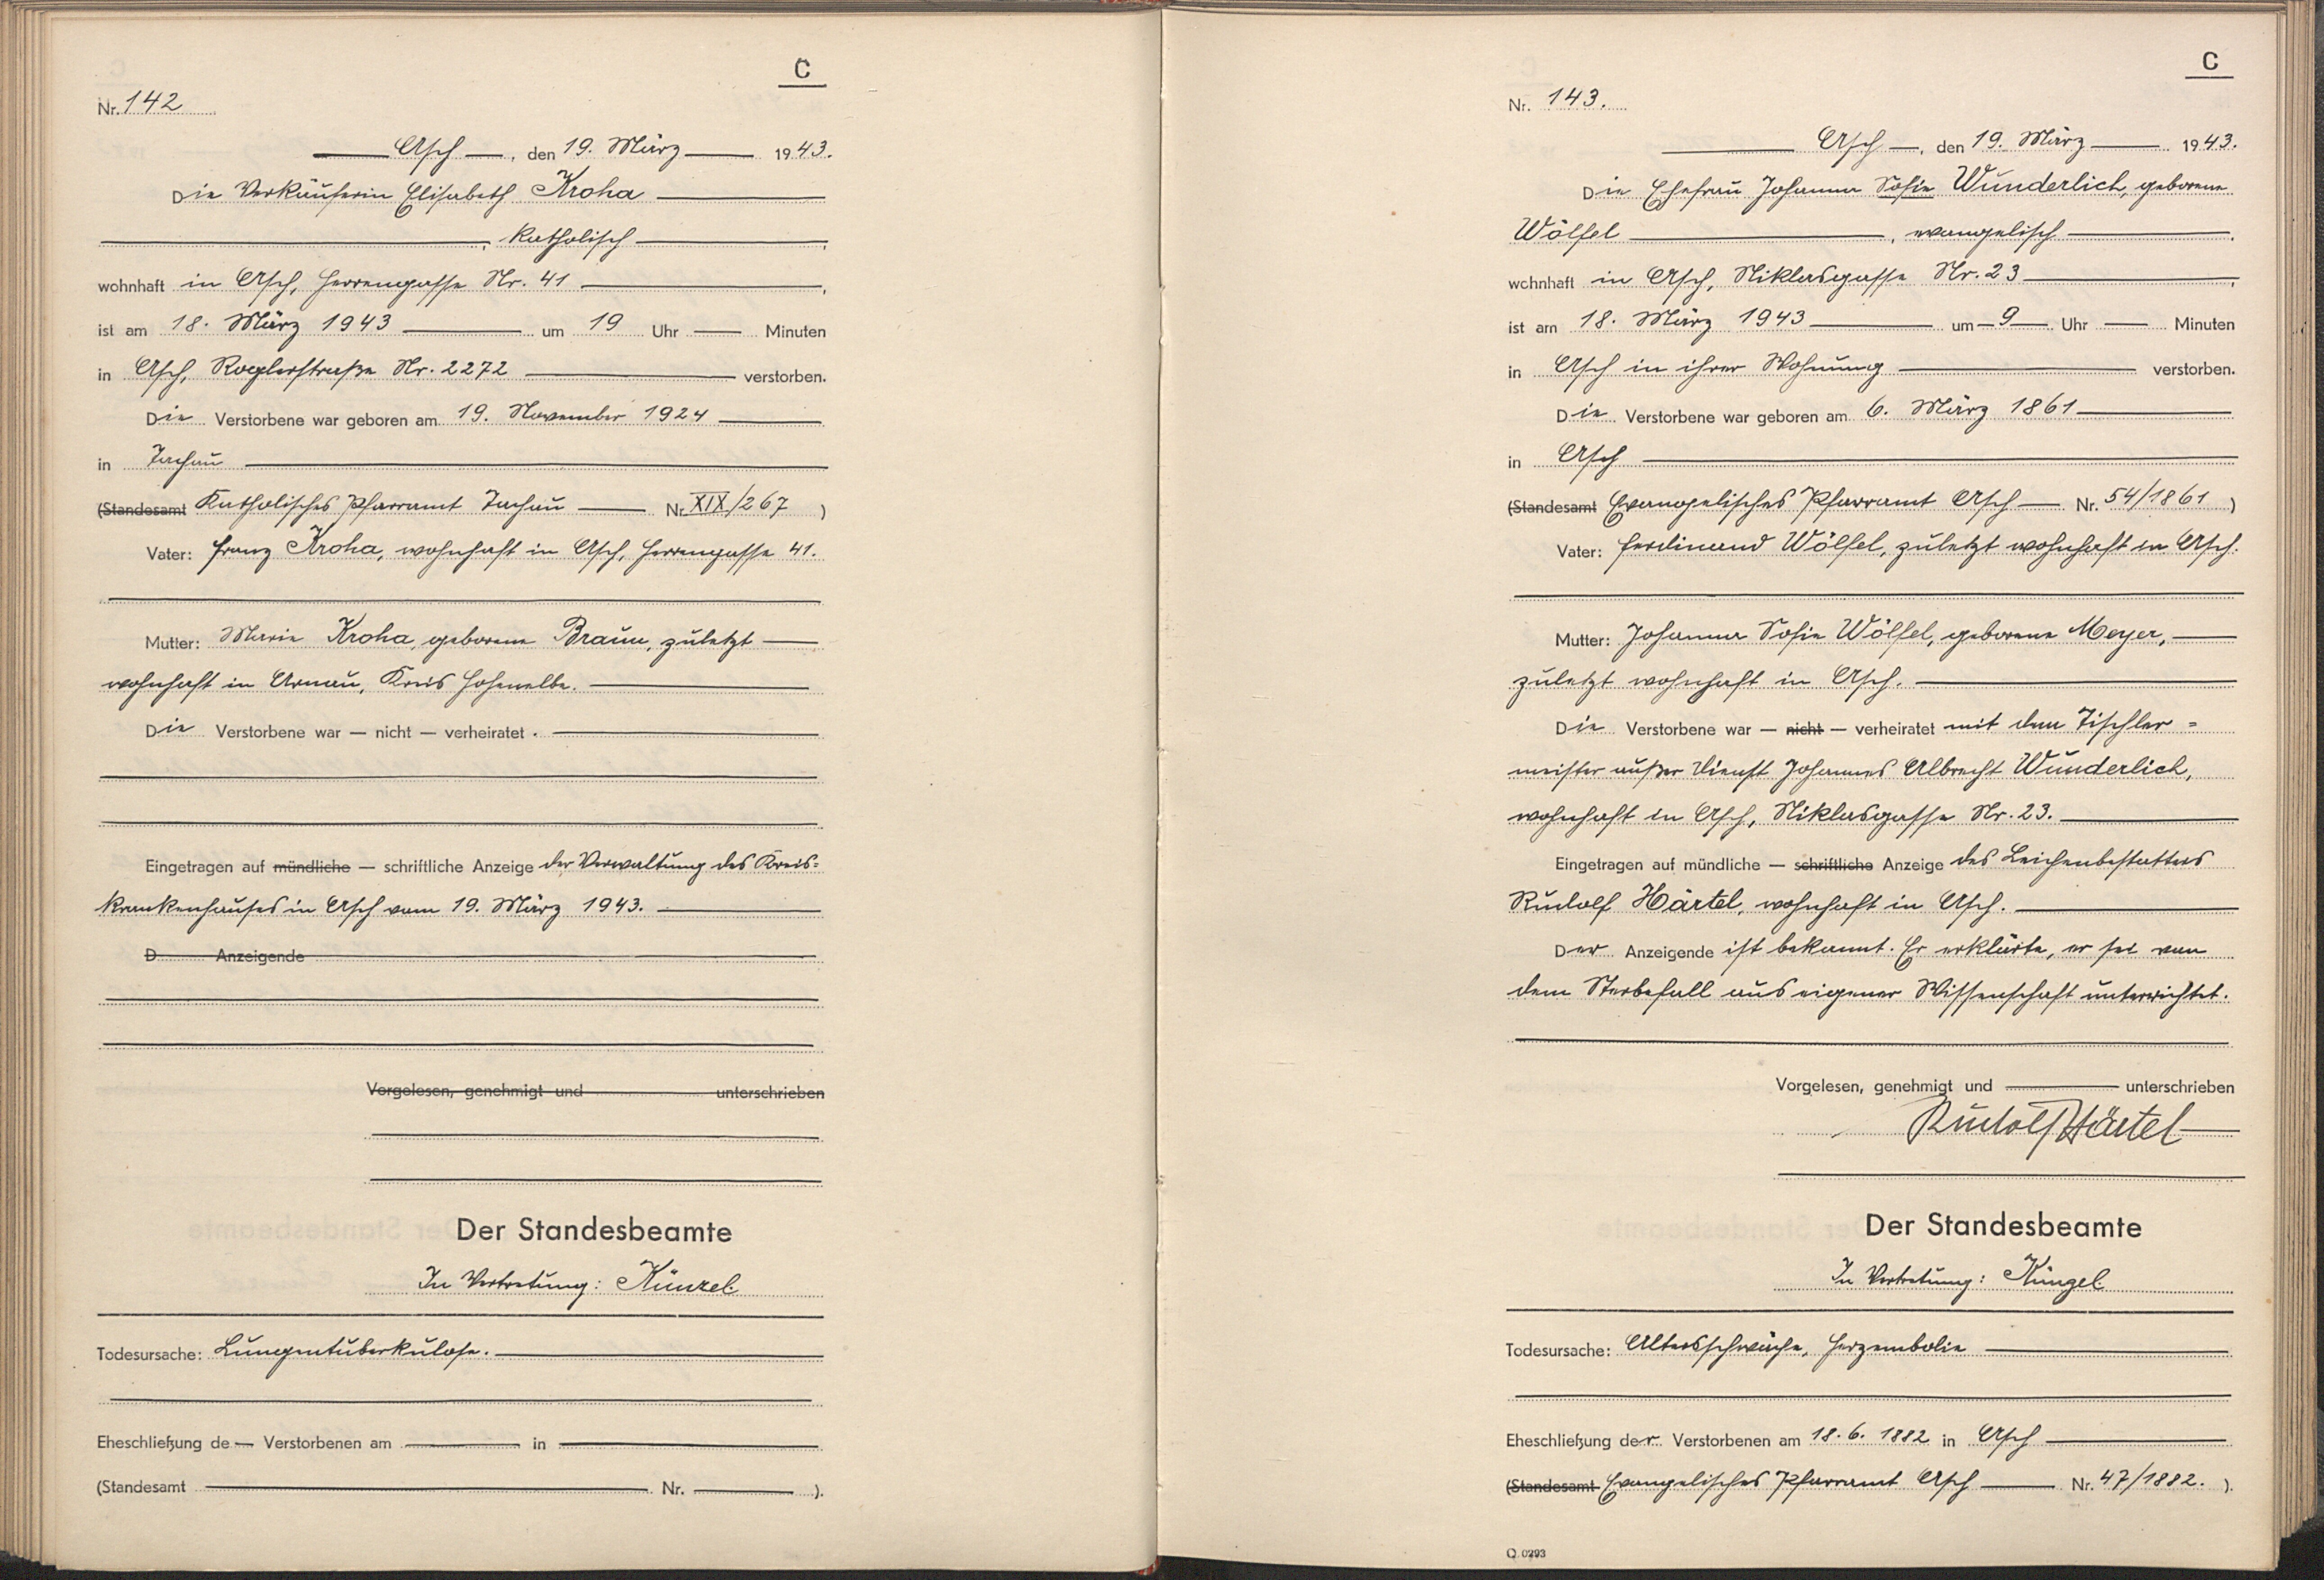 C
Nr. 142
Asch, den 19. März 1943.
Die Verkäuferin Elisabeth Kroha
, katholisch,
wohnhaft in Asch, Herrengasse Nr. 41,
ist am 18. März 1943 um 19 Uhr Minuten
in Asch, Roglerstraße Nr. 2272 verstorben.
Die Verstorbene war geboren am 19. November 1924
in Tachau
(Standesamt Katholisches Pfarramt Tachau Nr. XIX/267)
Vater: Franz Kroha, wohnhaft in Asch, Herrengasse 41.
Mutter: Marie Kroha, geborene Braun, zuletzt
wohnhaft in Arnau, Kreis Hohenelbe.
Die Verstorbene war — nicht — verheiratet.
Eingetragen auf mündliche — schriftliche Anzeige der Verwaltung des Kreis=
krankenhauses in Asch vom 19. März 1943.
D Anzeigende
Vorgelesen, genehmigt und unterschrieben
Der Standesbeamte
In Vertretung: Künzel.
Todesursache: Lungentuberkulose.
Eheschließung de — Verstorbenen am in
(Standesamt Nr. ).
C
Nr. 143.
Asch, den 19. März 1943.
Die Ehefrau Johanna Sofie Wunderlich, geborene
Wölfel, evangelisch,
wohnhaft in Asch, Niklasgasse Nr. 23,
ist am 18. März 1943 um 9 Uhr Minuten
in Asch in ihrer Wohnung verstorben.
Die Verstorbene war geboren am 6. März 1861
in Asch
(Standesamt Evangelisches Pfarramt Asch Nr. 54/1861)
Vater: Ferdinand Wölfel, zuletzt wohnhaft in Asch.
Mutter: Johanna Sofie Wölfel, geborene Meyer,
zuletzt wohnhaft in Asch.
Die Verstorbene war — nicht — verheiratet mit dem Tischler=
meister außer Dienst Johannes Albrecht Wunderlich,
wohnhaft in Asch, Niklasgasse Nr. 23.
Eingetragen auf mündliche — schriftliche Anzeige des Leichenbestatters
Rudolf Härtel, wohnhaft in Asch.
Der Anzeigende ist bekannt. Er erklärte, er sei von
dem Sterbefall aus eigener Wissenschaft unterrichtet.
Vorgelesen, genehmigt und unterschrieben
Rudolf Härtel
Der Standesbeamte
In Vertretung: Künzel.
Todesursache: Altersschwäche, Herzembolie
Eheschließung der Verstorbenen am 18. 6. 1882 in Asch
(Standesamt Evangelisches Pfarramt Asch Nr. 47/1882.).
Q 0293